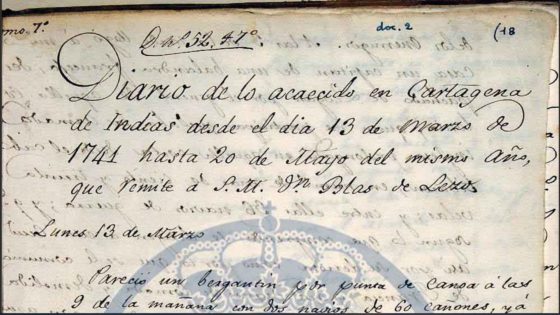 omo. 7º
doc. 2
(18
D. Nº. 52. 47º
Diario de lo acaecido en Cartagena
de Indias desde el dia 13 de Marzo de
1741 hasta 20 de Mayo del mismo Año,
que remite á S. M. Dn. Blas de Lezo.
Lunes 13 de Marzo
Pareció un bergantin por punta de canoa á las
9 de la mañana con dos navios de 60 cañones, yá